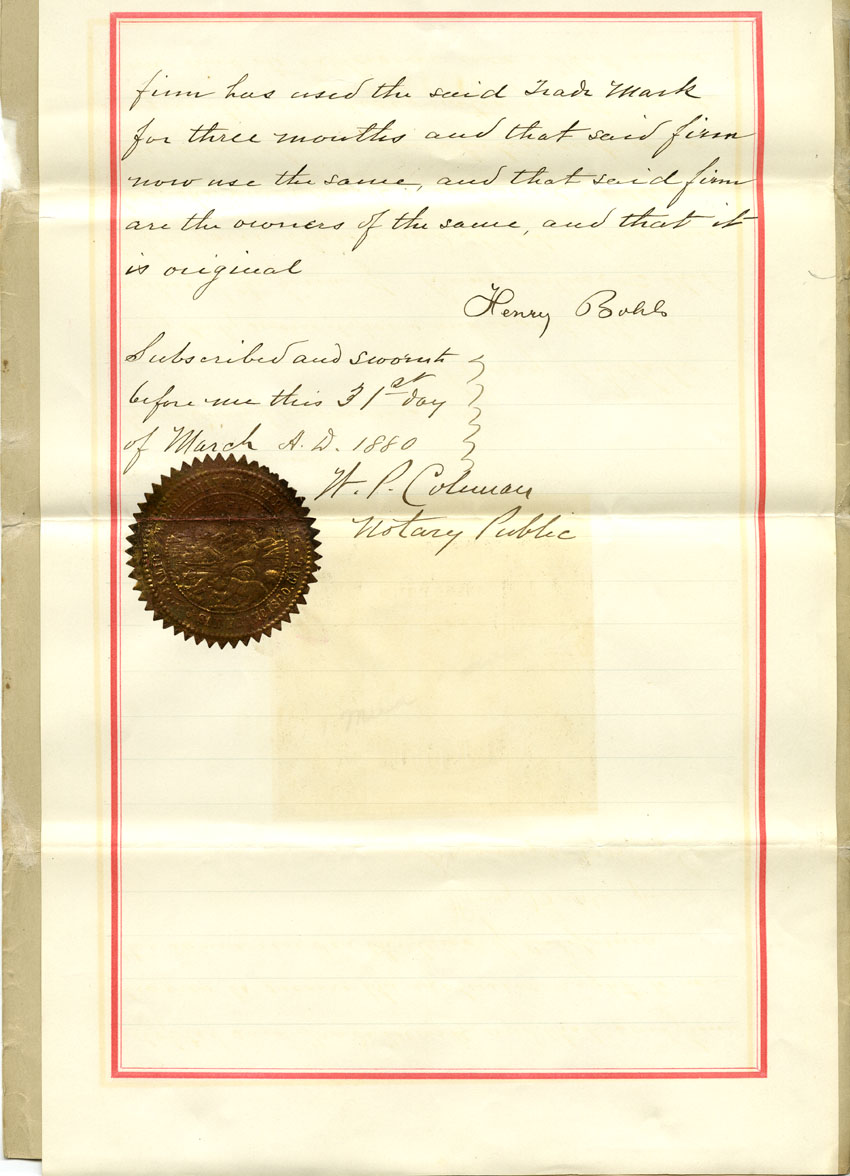 firm has used the said Trade Mark
for three months and that said firm
now use the same, and that said firm
are the owners of the same, and that it
is original
Henry Bohls
Subscribed and sworn to
before me this 31st day
of March A.D. 1880
W. P. Coleman
Notary Public